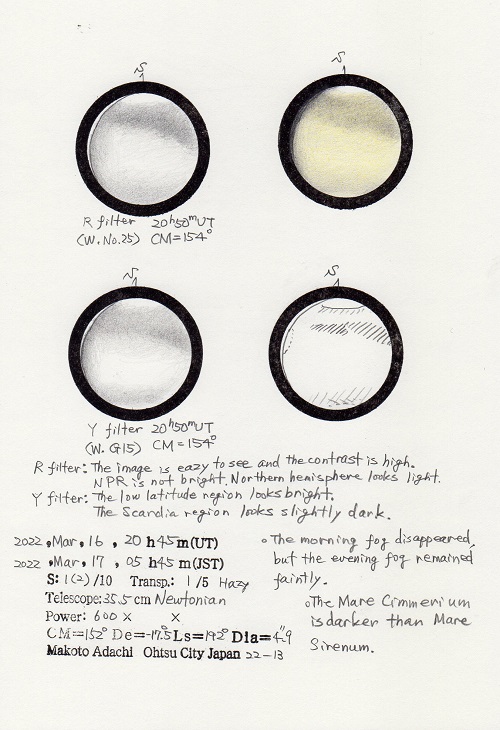 S
S
R filter 20h50mUT
(W. No. 25) CM=154°
S
S
Y filter 20h50mUT
(W. G15) CM=154°
R filter: The image is eazy to see and the contrast is high.
NPR is not bright. Northern hemisphere looks light.
Y filter: The low latitude region looks bright.
The Scandia region looks slightly dark.
2022, Mar, 16, 20 h 45 m (UT)
2022, Mar, 17, 05 h 45 m (JST)
S: 1(2)/10 Transp.: 1/5 Hazy
Telescope: 35.5 cm Newtonian
Power: 600 × ×
CM=152° De=-17.5° Ls=192° Dia=4".9
Makoto Adachi Ohtsu City Japan 22-13
○The morning fog disappeared,
but the evening fog remained
faintly.
○The Mare Cimmerium
is darker than Mare
Sirenum.